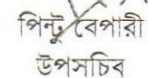 পিন্টু বেপারী
উপসচিব